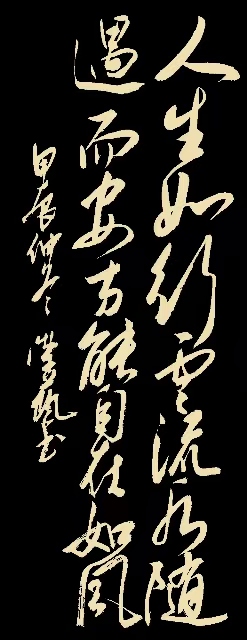 人生如行云流水随
遇而安方能自在如风
甲辰仲冬
书